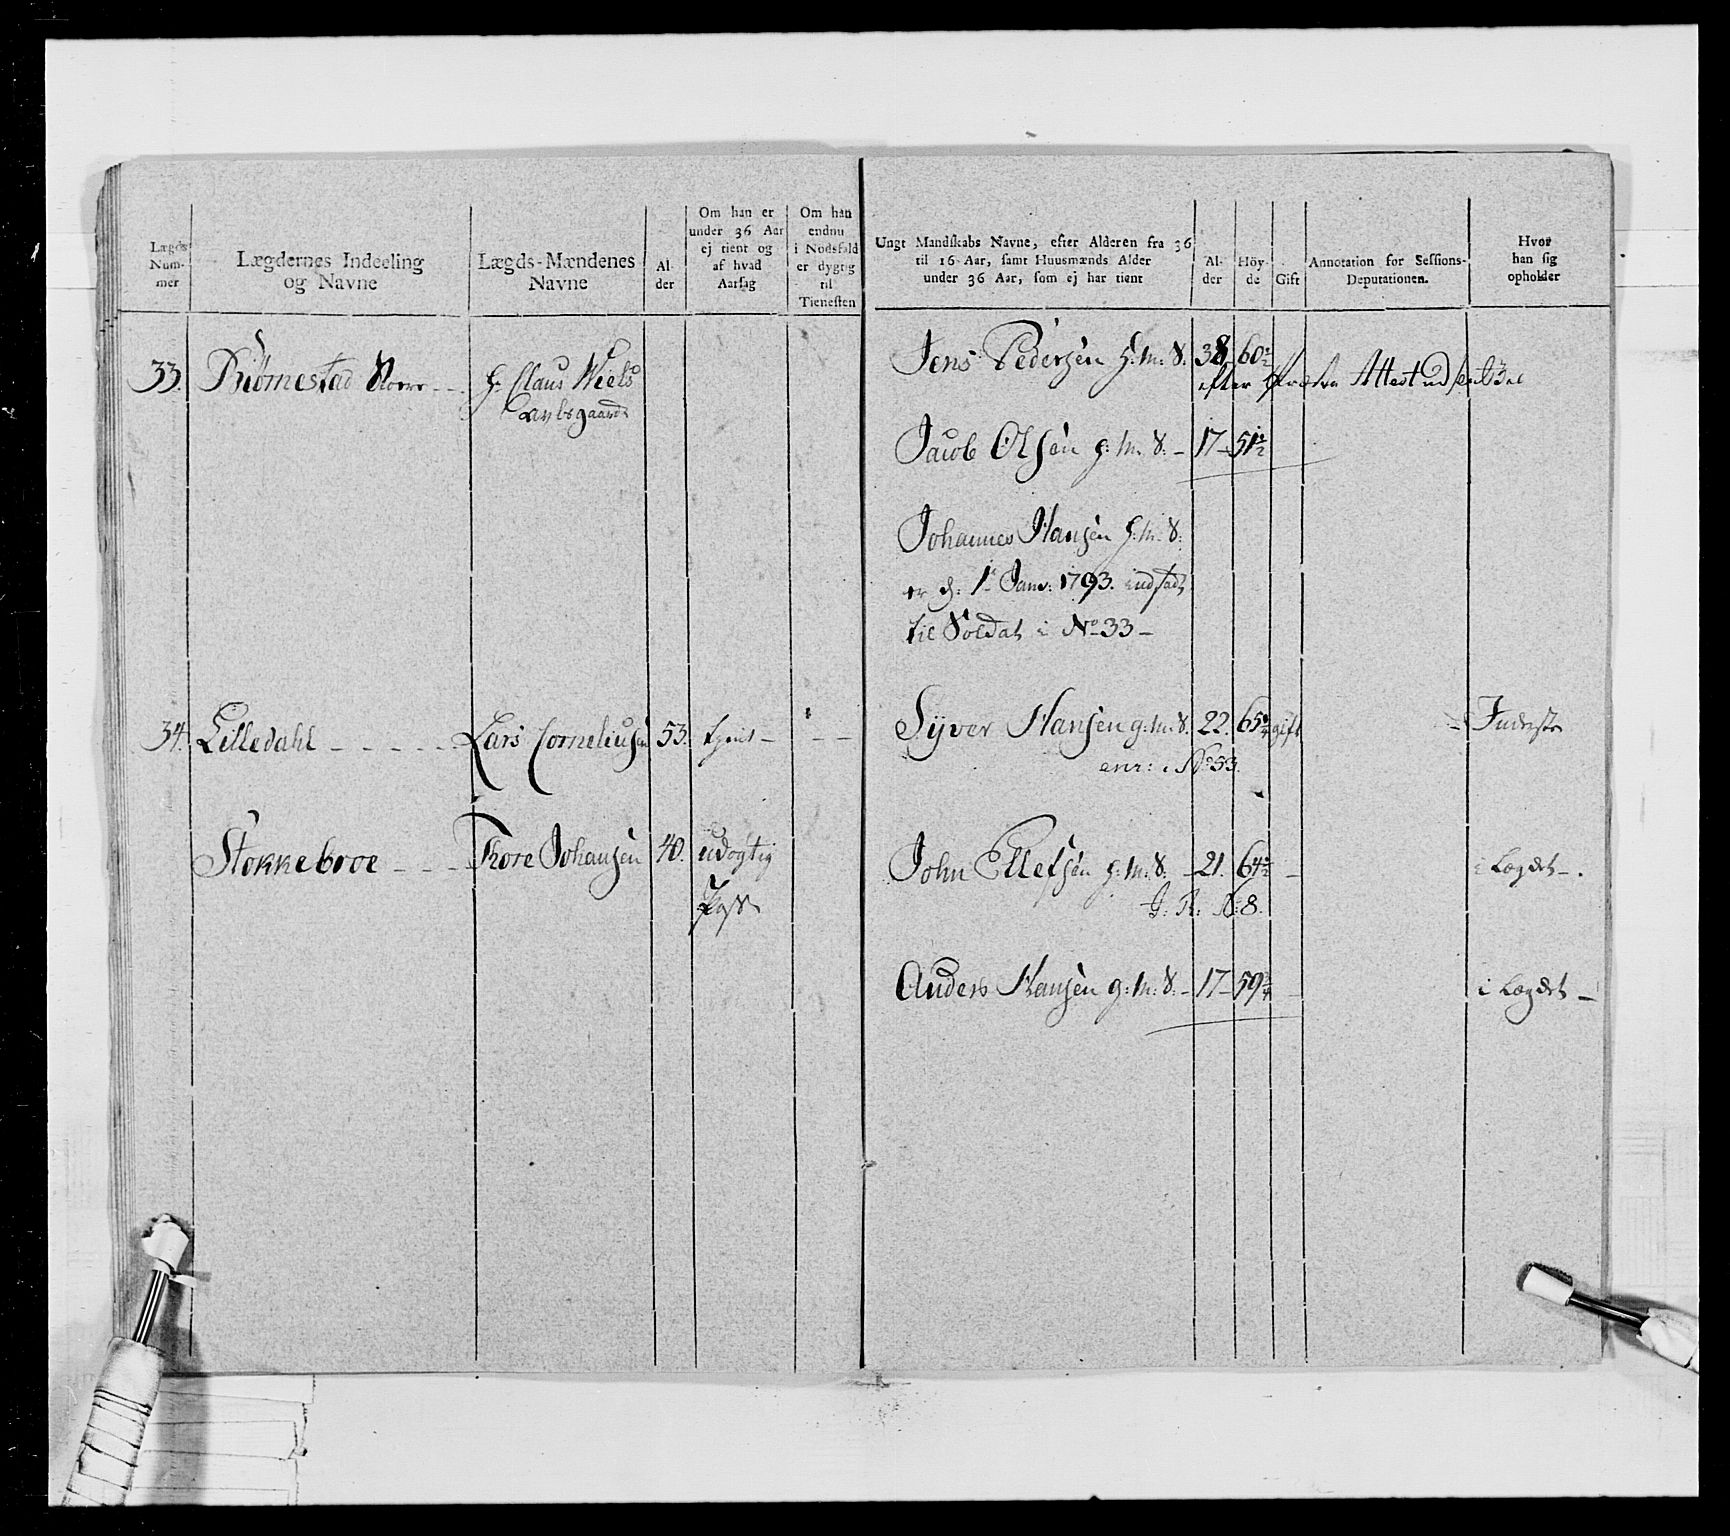 Lægds Num- mer
Lægdernes Indeeling og Navne
Lægds-Mændenes Navne
Al- der
Om han er under 36 Aar ej tient og af hvad Aarsag
Om han endnu i Nødsfald er dygtig til Tienesten
Ungt Mandskabs Navne, efter Alderen fra 36 til 16 Aar, samt Huusmænds Alder under 36 Aar, som ej har tient
Al- der
Høy- de
Gift
Annotation for Sessions-Deputationen.
Hvor han sig opholder
33. Biørnestad Store -- Hr Claus Niels
Jens Pedersen h: m: S. 38 60½
efter Attest
Jacob Olsen h: m: S: - 17 - 51½
Johannes Hansen h: m: S:
er d: 1te Janv: 1793. indsadt
til Soldat i No 33 -
34. Lilledahl - - - - - Lars Corneliusen 53. tient - - -
Syver Hansen g: m: S. 22. 65¼ gift - Inderste
enr: i No 53.
Stokkebroe - - - Thore Johansen 40. udøgtig
John Ellefsen h: m: S: - 21. 64½ - i Lægdet -.
J: R: N: 8.
Anders Hansen g: m: S. - 17 - 59¾ - i Lægdet -